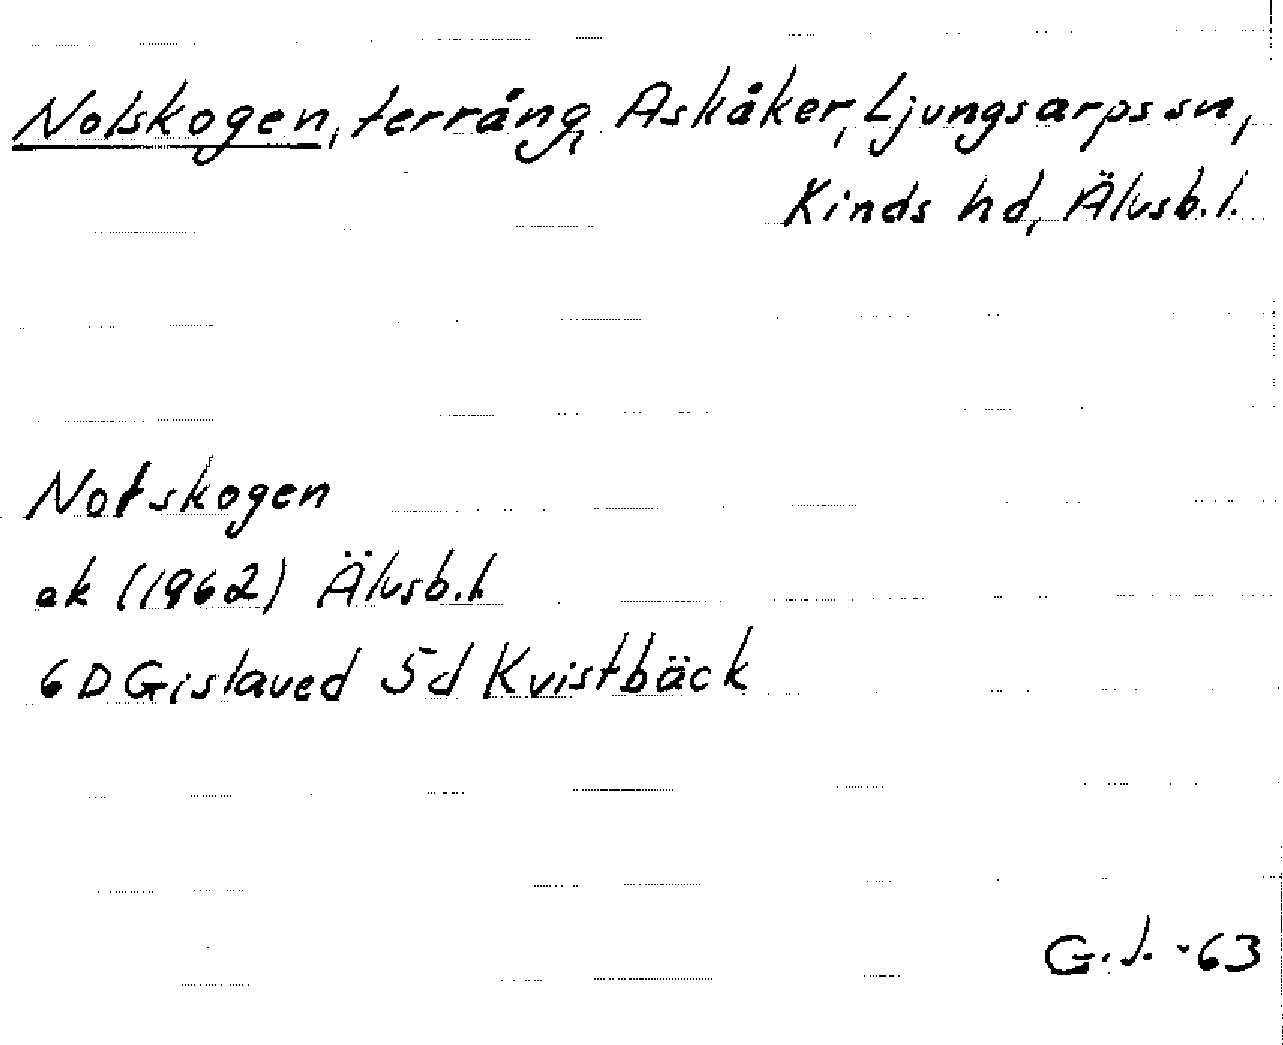 Notskogen, terräng, Askåker, Ljungsarps sn,
Kinds hd, Älvsb. l.
Notskogen
ek (1962) Älvsb. l
6D Gislaved 5d Kvistbäck
G. J. -63